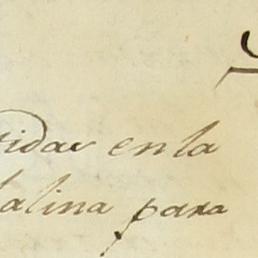 tidas en la
alina para